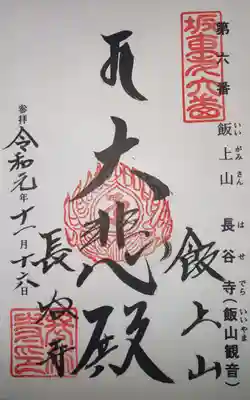 坂東第六番
第六番
飯上山
いいがみさん
長谷寺(飯山観音)
はせでら
いいやま
飯上山
大悲殿
長谷寺
参拝
令和元年十一月十六日